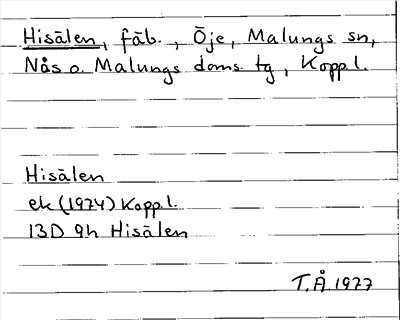 Hisälen, fäb., Öje, Malungs sn,
Nås o. Malungs doms. tg, Kopp.l.
Hisälen
ek (1974) Kopp.l.
13D 9h Hisälen
T.Å 1977